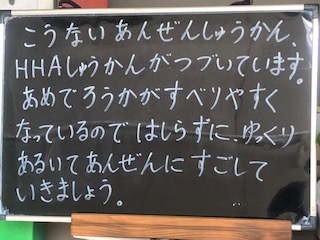 こうないあんぜんしゅうかん、
HHAしゅうかんがつづいています。
あめでろうかがすべりやすく
なっているのではしらずに、ゆっくり
あるいてあんぜんにすごして
いきましょう。